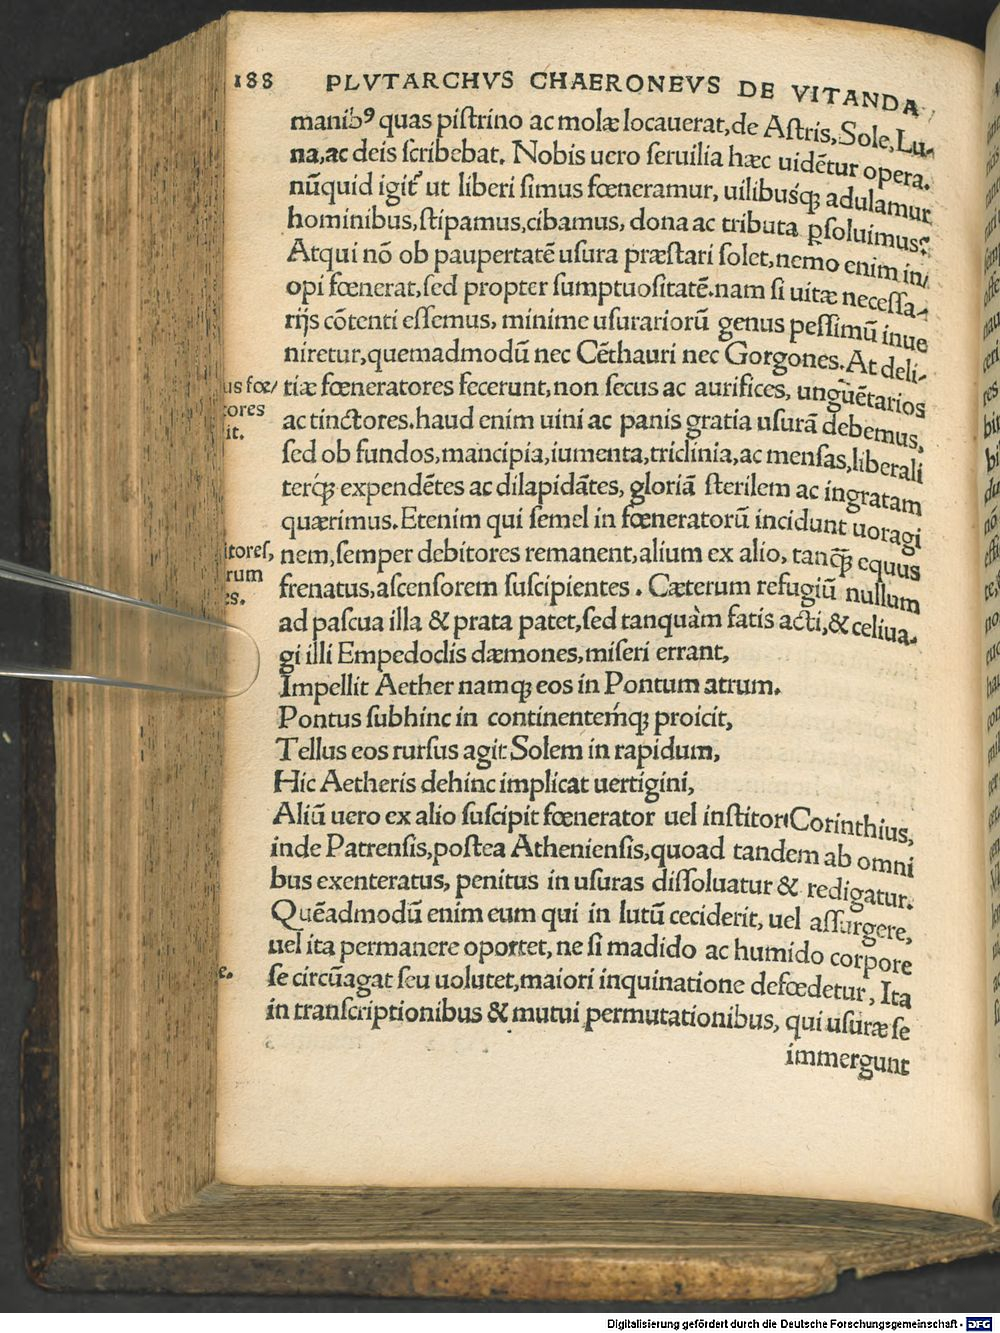 188 PLVTARCHVS CHAERONEVS DE VITANDA
manibꝰ quas piſtrino ac molæ locauerat, de Aſtris, Sole, Lu-
na, ac deis ſcribebat. Nobis uero ſeruilia hæc uidẽtur opera.
nũquid igit᷑ ut liberi ſimus fœneramur, uilibusq́ꝫ adulamur
hominibus, ſtipamus, cibamus, dona ac tributa ꝑſoluimus?
Atqui nõ ob paupertatẽ uſura præſtari ſolet, nemo enim in/
opi fœnerat, ſed propter ſumptuoſitatẽ. nam ſi uitæ neceſſa-
rijs cõtenti eſſemus, minime uſurariorũ genus peſſimũ inue
niretur, quemadmodũ nec Cẽthauri nec Gorgones. At deli-
tiæ fœneratores fecerunt, non ſecus ac aurifices, unguẽtarios
ac tinctores. haud enim uini ac panis gratia uſurã debemus,
ſed ob fundos, mancipia, iumenta, triclinia, ac menſas, liberali
terq́ꝫ expendẽtes ac dilapidãtes, gloriã ſterilem ac ingratam
quærimus. Etenim qui ſemel in fœneratorũ incidunt uoragi
nem, ſemper debitores remanent, alium ex alio, tanq̃ꝫ equus
frenatus, aſcenſorem ſuſcipientes. Cæterum refugiũ nullum
ad paſcua illa & prata patet, ſed tanquàm fatis acti, & celiua-
gi illi Empedoclis dæmones, miſeri errant,
Impellit Aether namqꝫ eos in Pontum atrum.
Pontus ſubhinc in continentemq́ꝫ proicit,
Tellus eos rurſus agit Solem in rapidum,
Hic Aetheris dehinc implicat uertigini,
Aliũ uero ex alio ſuſcipit fœnerator uel inſtitor Corinthius,
inde Patrenſis, poſtea Athenienſis, quoad tandem ab omni
bus exenteratus, penitus in uſuras diſſoluatur & redigatur.
Quẽadmodũ enim eum qui in lutũ ceciderit, uel aſſurgere,
uel ita permanere oportet, ne ſi madido ac humido corpore
ſe circũagat ſeu uolutet, maiori inquinatione defœdetur, Ita
in tranſcriptionibus & mutui permutationibus, qui uſuræ ſe
immergunt
us fœ/
tores
it.
itores,
rum
es.
e.
Digitalisierung gefördert durch die Deutsche Forschungsgemeinschaft - DFG